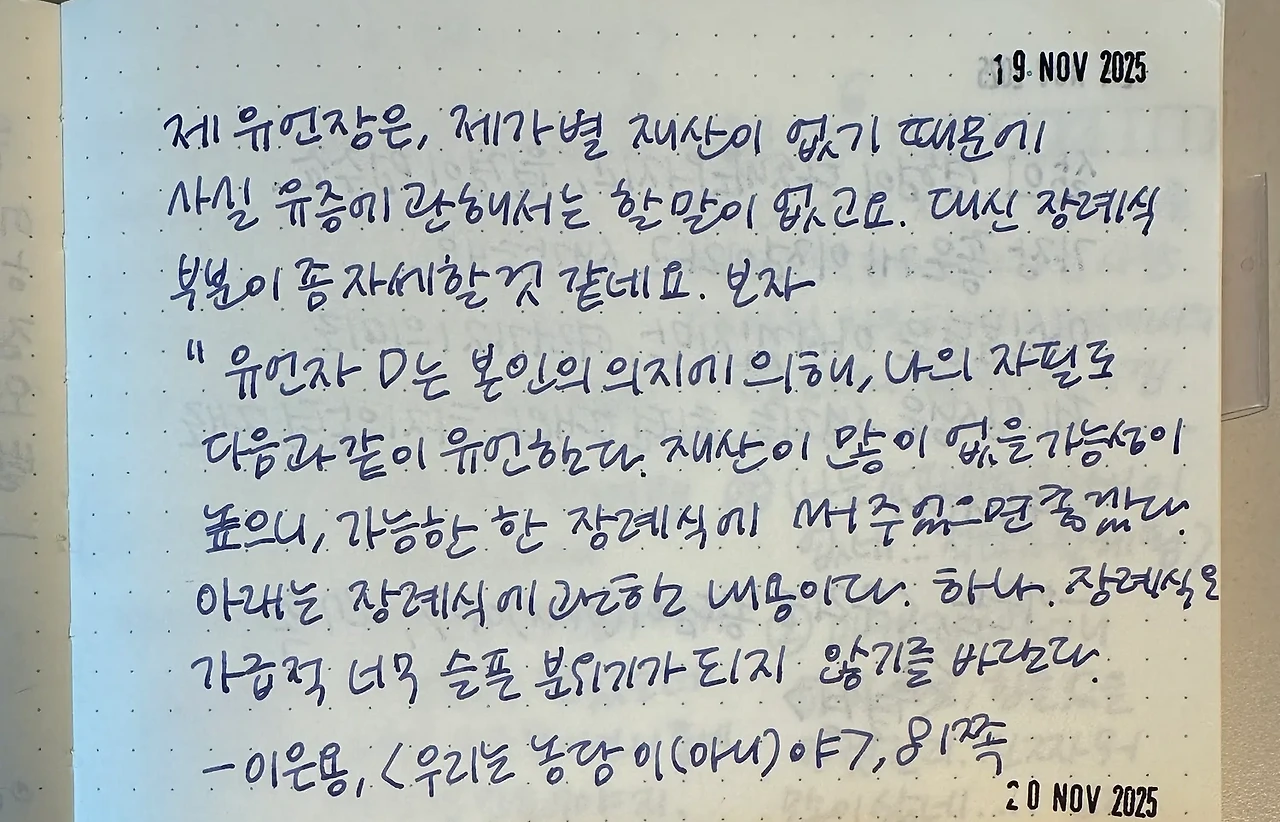 19 NOV 2025
제 유언장은, 제가 별 재산이 없기 때문에
사실 유증에 관해서는 할 말이 없고요. 대신 장례식
부분이 좀 자세할 것 같네요. 보자
" 유언자 D는 본인의 의지에 의해, 나의 자필로
다음과 같이 유언한다. 재산이 많이 없을 가능성이
높으니, 가능한 한 장례식에 써 주었으면 좋겠다.
아래는 장례식에 관한 내용이다. 하나. 장례식은
가급적 너무 슬픈 분위기가 되지 않기를 바란다.
- 이은용, <우리는 농담이(아니)야>, 81쪽
20 NOV 2025